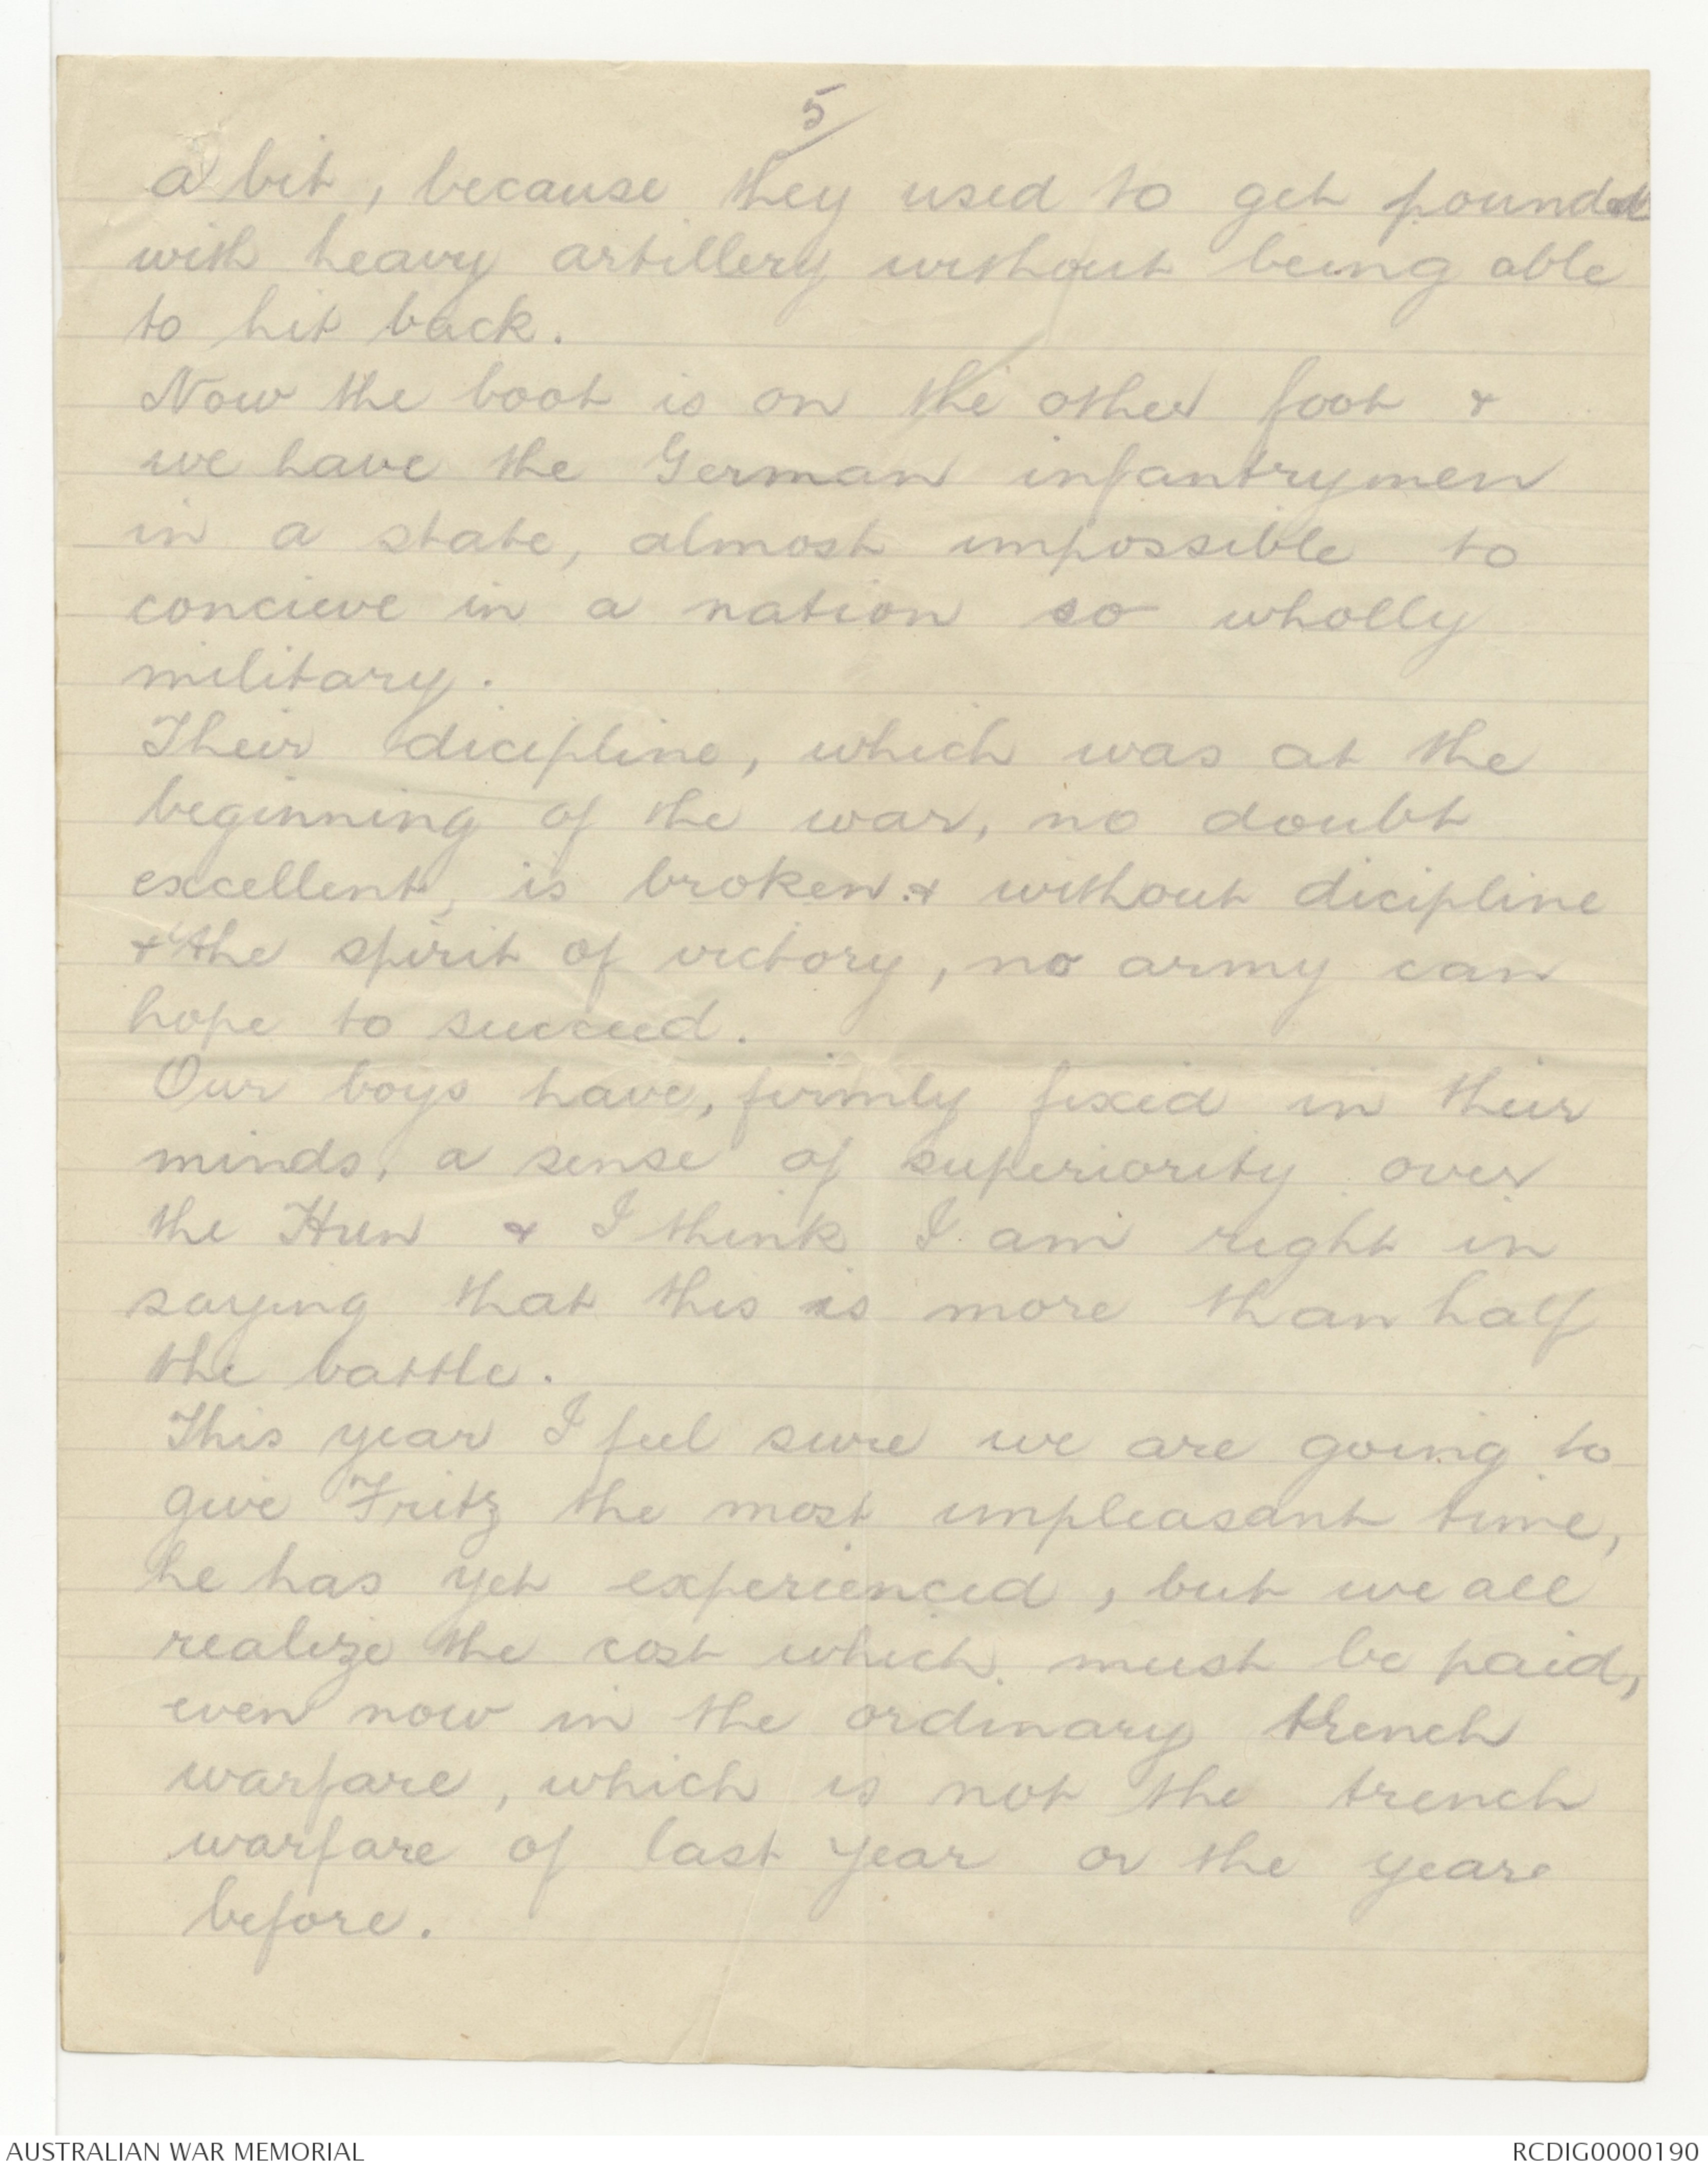 5/
a bit, because they used to get pounded
with heavy artillery without being able
to hit back.
Now the boot is on the other foot &
we have the German infantrymen
in a state, almost impossible to
concieve in a nation so wholly
military.
Their dicipline, which was at the
beginning of the war, no doubt
excellent, is broken & without dicipline
& the spirit of victory, no army can
hope to succeed.
Our boys have, firmly fixed in their
minds, a sense of superiority over
the Hun & I think I am right in
saying that this is more than half
the battle.
This year I feel sure we are going to
give Fritz the most unpleasant time,
he has yet experienced, but we all
realize the cost which must be paid,
even now in the ordinary trench
warfare, which is not the trench
warfare of last year or the years
before.
AUSTRALIAN WAR MEMORIAL
RCDIG0000190